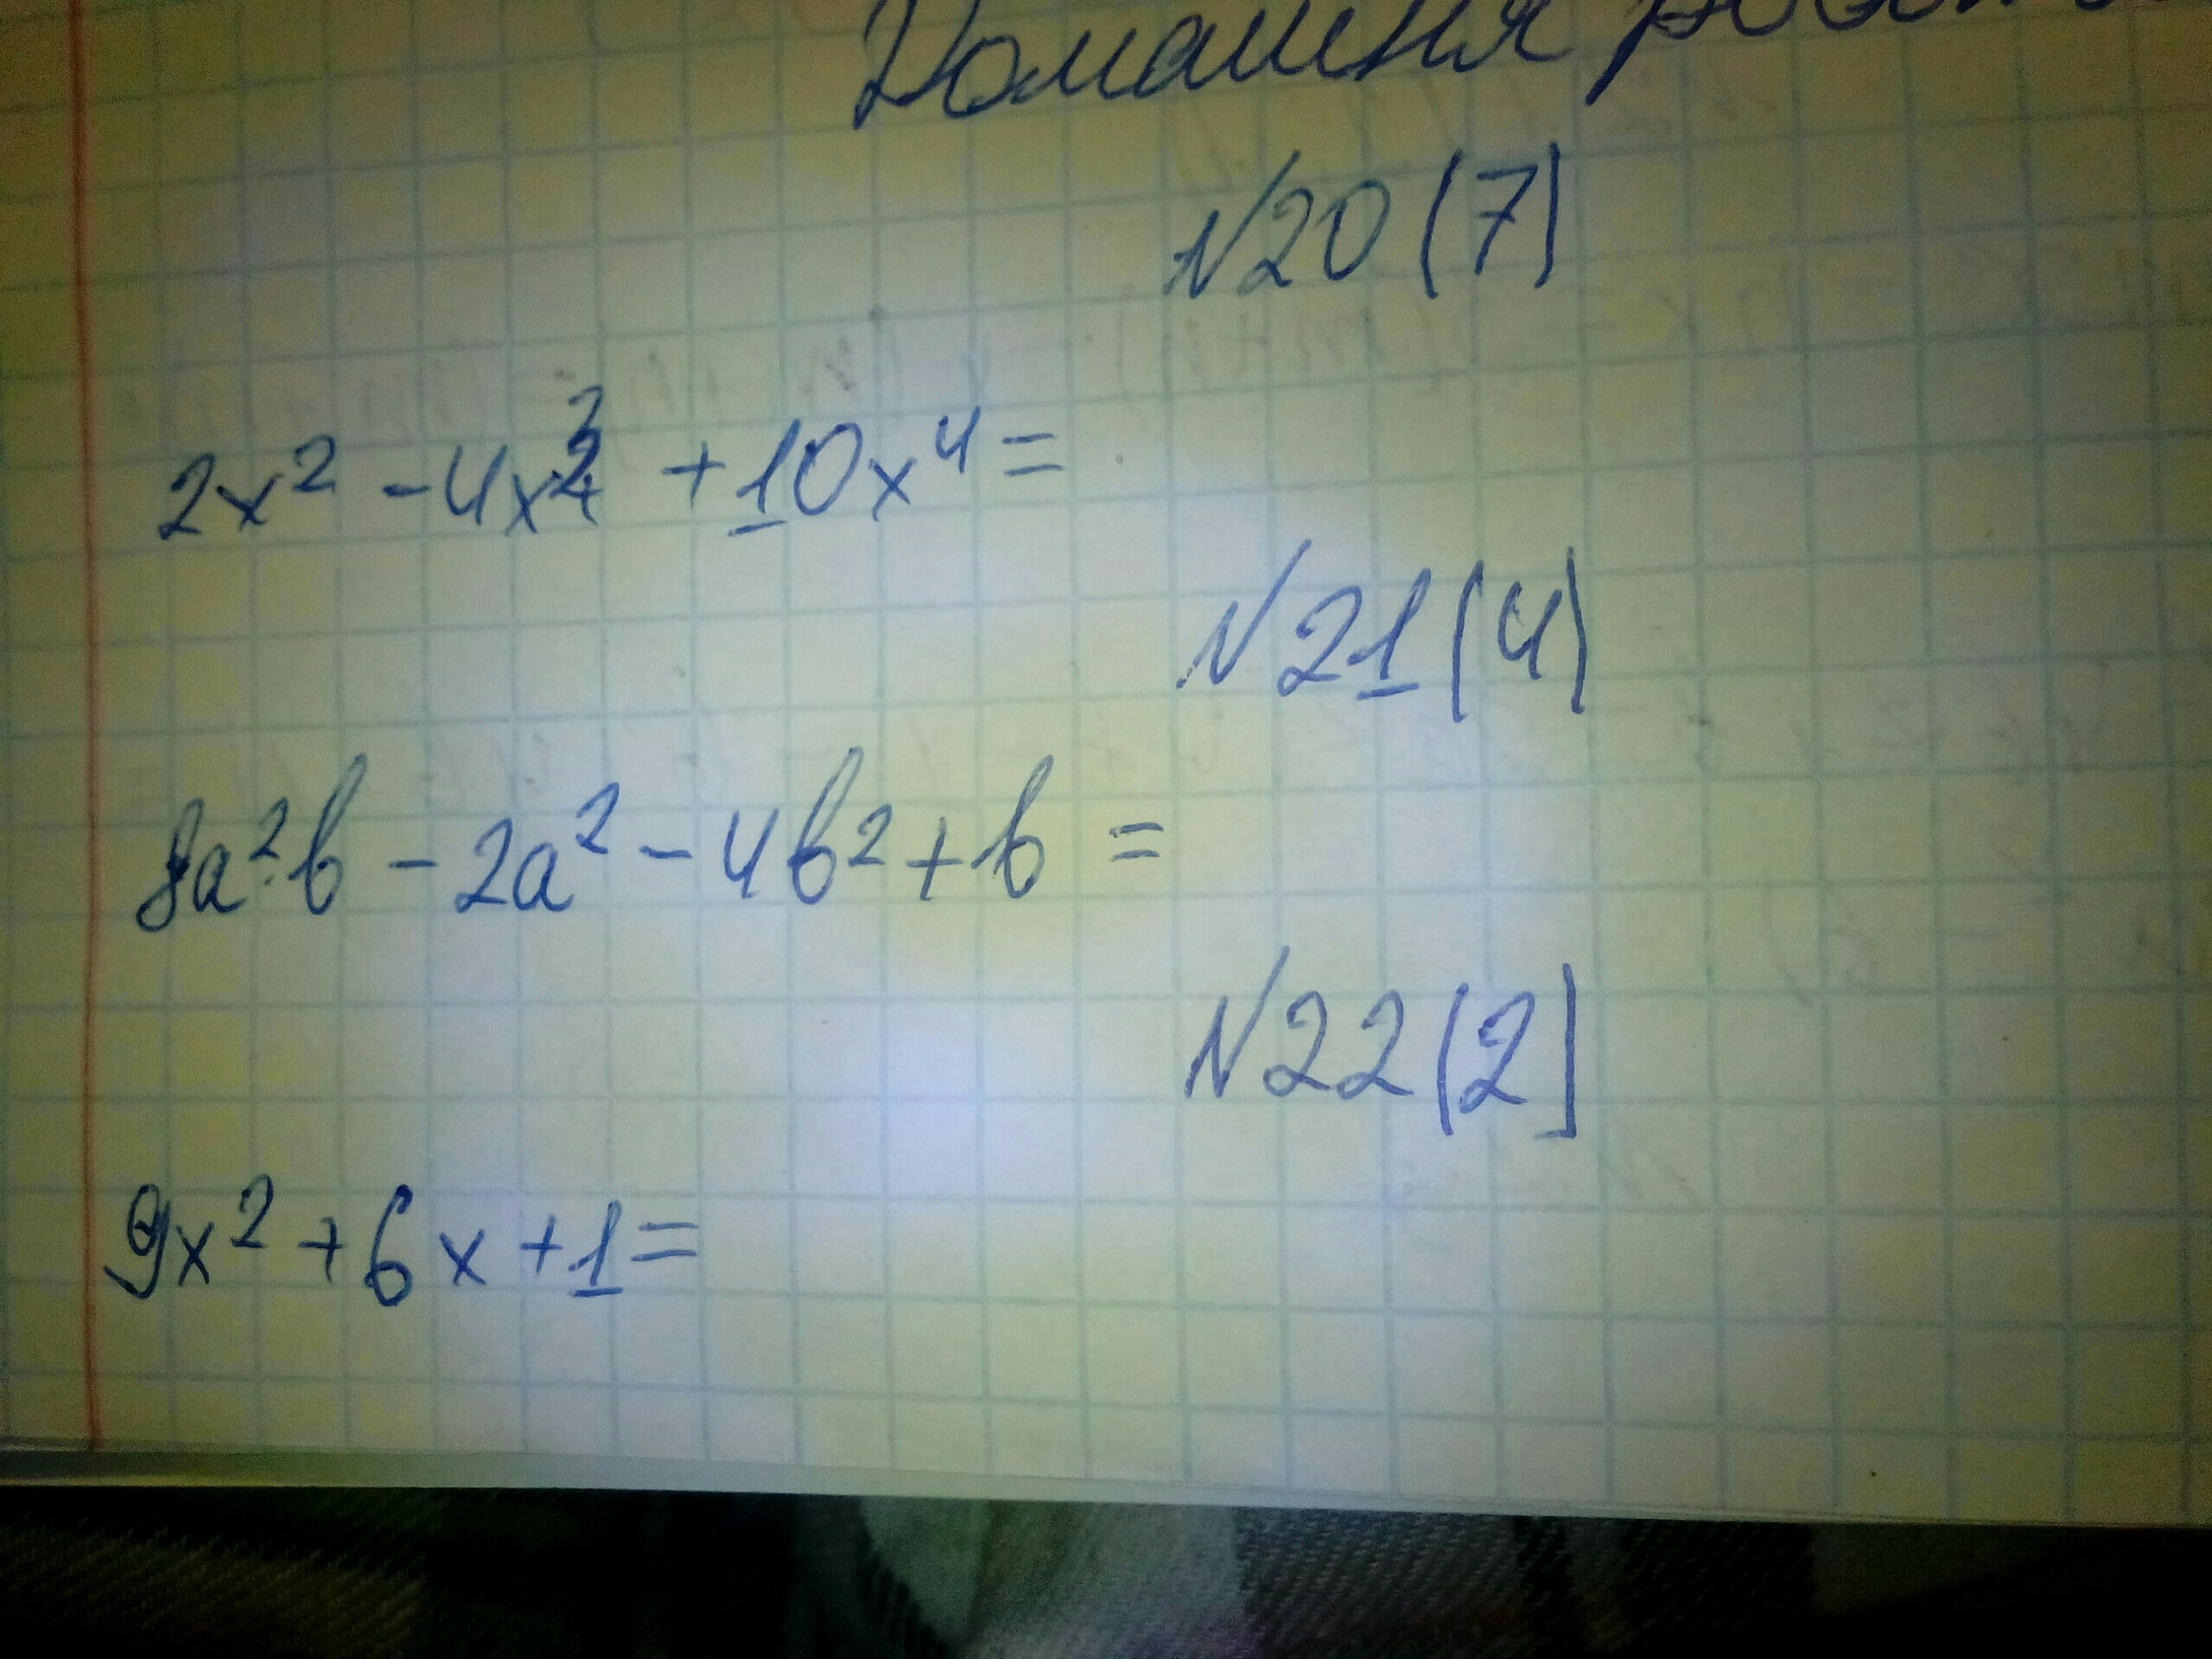 Домашня робота
№20 (7)
2x² - 4x³ + 10x⁴ =
№21 (4)
8a²b - 2a² - 4b² + b =
№22 (2]
9x² + 6x + 1 =